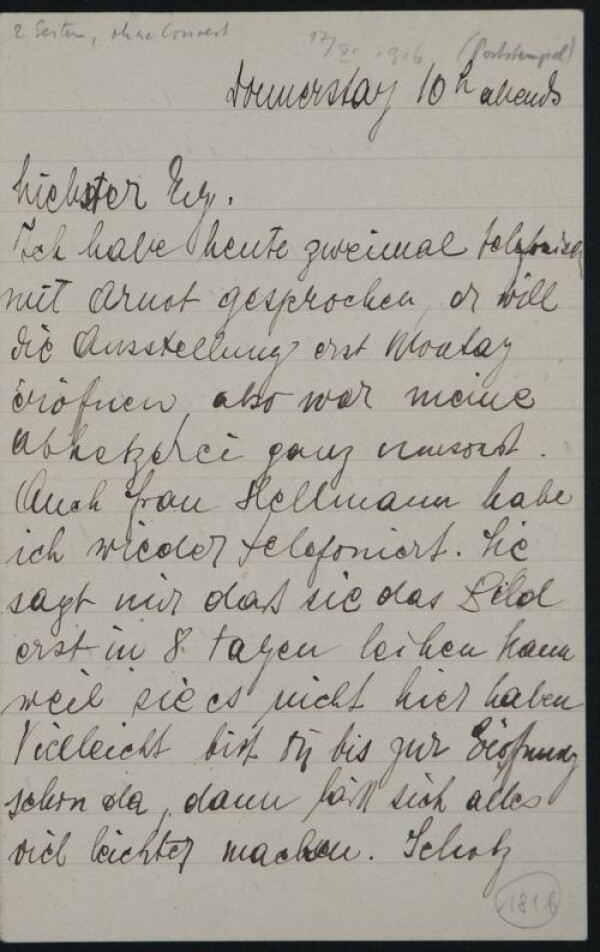 2 Seiten, ohne Couvert
17/XI 1916 (Poststempel)
Donnerstag 10 h abends
Liebster Eg.
Ich habe heute zweimal telefonisch
mit Arnot gesprochen, er will
die Ausstellung erst Montag
eröfnen, also war meine
Abhetzerei ganz umsonst.
Auch Frau Hellmann habe
ich wieder telefoniert. Sie
sagt mir daß sie das Bild
erst in 8 tagen leihen kann
weil sie es nicht hier haben
Vielleicht bist du bis zur Eröfnung
schon da, dann läßt sich alles
viel leichter machen. Schatz
1816